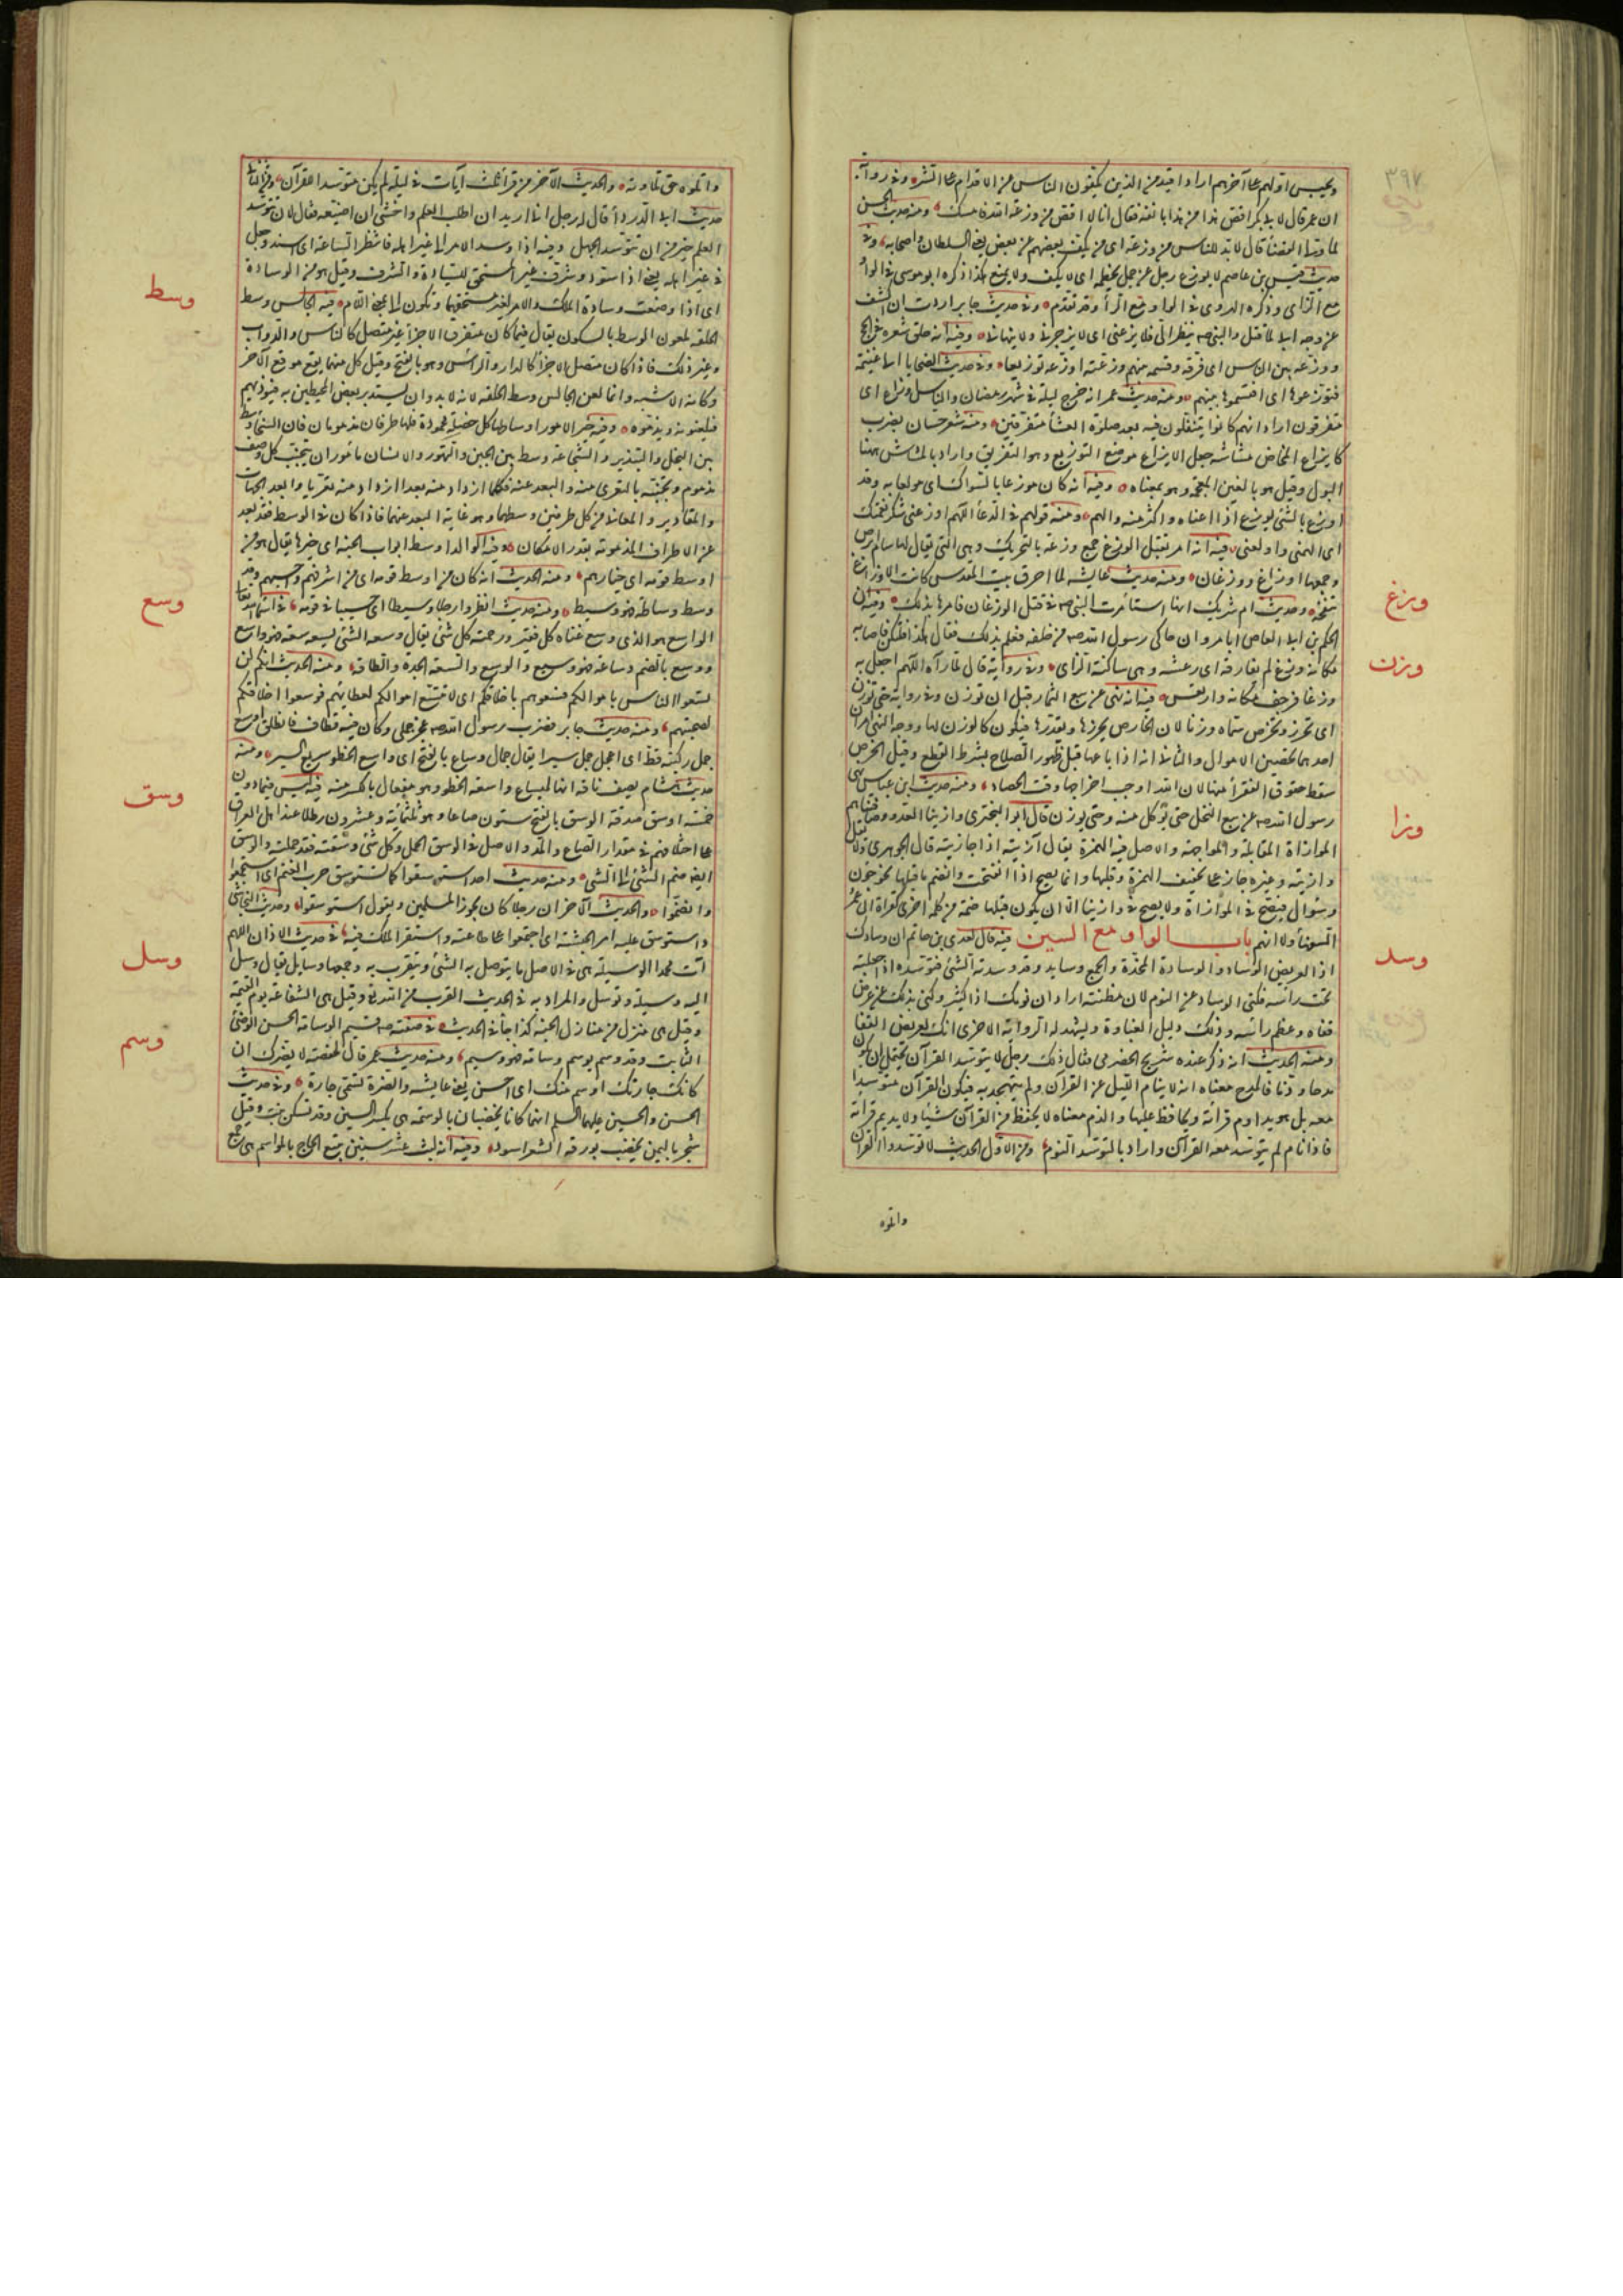 ٣٩٧
ويحبس اولهم على آخرهم اراد اقيد من الذين يكفون الناس عن الاقدام على الشر وفى رواية
ان عمر قال لابى بكر اقص هذا من هذا بانفه فقال انا لا اقص من وزعة الله فامسك ومنه حديث الحسن
لما ولى القضا قال لا بد للناس من وزعة اى من يكف بعضهم عن بعض يعنى السلطان واصحابه وفى
حديث قيس بن عاصم لا يوزع رجل عن جمل يخطمه اى لا يكف ولا يمنع هكذا ذكره ابو موسى فى الواو
مع الزاى وذكره الهروى فى الواو مع الرا وقد تقدم وفى حديث جابر اردت ان اكشف
عن وجه ابى لما قتل والنبى صه ينظر الى فلا يزعنى اى لا يزجرنى ولا ينهانى وفيه انه حلق شعره فى الحج
ووزعه بين الناس اى فرقه وقسمه بينهم وزعته اوزعه توزيعا وفى حديث الضحايا الى غنيمة
فتوزعوها اى اقتسموها بينهم ومنه حديث عمر انه خرج ليلة فى شهر رمضان والناس اوزاع اى
متفرقون اراد انهم كانوا يتنفلون فيه بعد صلوة العشا متفرقين ومنه شعر حسان بضرب
كايزاع المخاض مشاشه جعل الايزاع موضع التوزيع وهو التفريق واراد بالمشاش ههنا
البول وقيل هو بالغين المعجمة وهو بمعناه وفيه انه كان موزعا بالسواك اى مولعا به وقد
اوزع بالشئ يوزع اذا اعتاده واكثر منه والهم ومنه قولهم فى الدعا اللهم اوزعنى شكر نعمتك
اى الهمنى واولعنى فيه انه امر بقتل الوزغ جمع وزغة بالتحريك وهى التى يقال لها سام ابرص
وجمعها اوزاغ ووزغان ومنه حديث عايشه لما احرق بيت المقدس كانت الاوزاغ
تنفخه وحديث ام شريك انها استأمرت النبى صه فى قتل الوزغان فامرها بذلك وفيه ان
الحكم بن ابى العاص ابا مروان حاكى رسول الله صه من خلفه فعلم بذلك فقال كذا فلتكن فاصابه
مكانه وزغ لم يفارقه اى رعشة وهى ساكنة الزاى وفى رواية قال لما رآه اللهم اجعل به
وزغا فرجف مكانه وارتعش فيه انه نهى عن بيع الثمار قبل ان توزن وفى رواية حتى توزن
اى تحرز وتخرص سماه وزنا لان الخارص يحرزها ويقدرها فيكون كالوزن لها ووجه النهى امران
احدهما تحصين الاموال والثانى انه اذا باعها قبل ظهور الصلاح بشرط القطع وقبل الخرص
سقط حقوق الفقرا منها لان الله اوجب اخراجها وقت الحصاد ومنه حديث ابن عباس نهى
رسول الله صه عن بيع النخل حتى يؤكل منه وحتى يوزن قال ابو البخترى وازينا العدو وصاففناهم
الموازاة المقابلة والمواجهة والاصل فيه الهمزة يقال آزيته اذا حاذيته قال الجوهرى ولا تقل
وازيته وغيره جازه على تخفيف الهمزة وقلبها وانما يصح اذا انفتحت وانضم ما قبلها نحو جؤن
وسؤال فيصح فى الموازاة ولا يصح فى وازينا الا ان يكون قبلها ضمة من كلمة اخرى كقراة ابى عمرو
السفها ولا انهم باب الواو مع السين فيه قال لعدى بن حاتم ان وسادك
اذا لعريض الوساد والوسادة المخدة والجمع وسايد وقد وسدته الشئ فتوسده اذا جعلته
تحت راسه فكنى بالوساد عن النوم لان مظنته اراد ان نومك اذا كثير وكنى بذلك عن عرض
قفاه وعظم راسه وذلك دليل الغباوة ويشهد له الرواية الاخرى انك لعريض القفا
ومنه الحديث انه ذكر عنده شريح الحضرمى فقال ذلك رجل لا يتوسد القرآن يحتمل ان يكون
مدحا وذما فالمدح معناه انه لا ينام الليل عن القرآن ولم يتهجد به فيكون القرآن متوسدا
معه بل هو يداوم قراته ويحافظ عليها والذم معناه لا يحفظ من القرآن شيئا ولا يديم قراته
فاذا نام لم يتوسد معه القرآن واراد بالتوسد النوم ومن الاول الحديث لا توسدوا القرآن
واتلوه
وزغ
وزن
وزا
وسد
واتلوه حق تلاوته والحديث الآخر من قرا ثلث آيات فى ليلة لم يكن متوسدا للقرآن ومن الثانى
حديث ابى الدردا قال له رجل انى اريد ان اطلب العلم واخشى ان اضيعه فقال لان تتوسد
العلم خير من ان تتوسد الجهل وفيه اذا وسد الامر الى غير اهله فانتظر الساعة اى اسند وجعل
فى غير اهله يعنى اذا سود وشرف غير المستحق للسيادة والشرف وقيل هو من الوسادة
اى اذا وضعت وسادة الملك والامر لغير مستحقهما وتكون الى بمعنى اللام فيه الجالس وسط
الحلقة ملعون الوسط بالسكون يقال فيما كان متفرق الاجزا غير متصل كالناس والدواب
وغير ذلك فاذا كان متصل الاجزا كالدار والراس فهو بالفتح وقيل كل منهما يقع موقع الآخر
وكانه الاشبه وانما لعن الجالس وسط الحلقة لانه لا بد وان يستدبر بعض المحيطين به فيؤذيهم
فيلعنونه ويذمونه وفيه خير الامور اوساطها كل خصلة محمودة فلها طرفان مذمومان فان السخا وسط
بين البخل والتبذير والشجاعة وسط بين الجبن والتهور والانسان مأمور ان يتجنب كل وصف
مذموم وتجنبه بالتعرى منه والبعد عنه فكلما ازداد منه بعدا ازداد منه تعريا وابعد الجهات
والمقادير والمعانى من كل طرفين وسطهما وهو غاية البعد عنهما فاذا كان فى الوسط فقد بعد
عن الاطراف المذمومة بقدر الامكان وفيه الوالد اوسط ابواب الجنة اى خيرها يقال هو من
اوسط قومه اى خيارهم ومنه الحديث انه كان من اوسط قومه اى من اشرفهم واحسبهم وقد
وسط وساطة فهو وسيط ومنه حديث انظروا رجلا وسيطا اى حسيبا فى قومه فى اسما الله تعالى
الواسع هو الذى وسع غناه كل فقير ورحمته كل شئ يقال وسعه الشئ يسعه سعة فهو واسع
ووسع بالضم وساعة فهو وسيع والوسع والسعة الجدة والطاقة ومنه الحديث انكم لن
تسعوا الناس باموالكم فسعوهم باخلاقكم اى لا تتسع اموالكم لعطائهم فوسعوا اخلاقكم
لصحبتهم ومنه حديث جابر فضرب رسول الله صه عجز جملى وكان فيه قطاف فانطلق اوسع
جمل ركبته قط اى اعجل جمل سيرا يقال جمل وساع بالفتح اى واسع الخطو سريع السير ومنه
حديث هشام يصف ناقة انها لميساع واسعة الخطو وهو مفعال بالكسر منه فيه ليس فيما دون
خمسة اوسق صدقة الوسق بالفتح ستون صاعا وهو ثلثمائة وعشرون رطلا عند اهل العراق
على اختلافهم فى مقدار الصاع والمد والاصل فى الوسق الحمل وكل شئ وسقته فقد حملته والوسق
ايضا ضم الشئ الى الشئ ومنه حديث احد استوسقوا كما تستوسق جرب الغنم اى استجمعوا
وانضموا والحديث الآخر ان رجلا كان يجوز المسلمين ويقول استوسقوا وحديث النجاشى
واستوسق عليه امر الحبشة اى اجتمعوا على طاعته واستقر الملك فيه فى حديث الاذان اللهم
آت محمدا الوسيلة هى فى الاصل ما يتوصل به الى الشئ ويتقرب به وجمعها وسايل يقال وسل
اليه وسيلة وتوسل والمراد به فى الحديث القرب من الله تع وقيل هى الشفاعة يوم القيمة
وقيل هى منزل من منازل الجنة كذا جا فى الحديث فى صفته صه قسيم الوسامة الحسن الوضئ
الثابت وقد وسم يوسم وسامة فهو وسيم ومنه حديث عمر قال لحفصة لا يغرك ان
كانت جارتك اوسم منك اى احسن يعنى عايشه والضرة تسمى جارة وفى حديث
الحسن والحسين عليهما السلم انهما كانا يخضبان بالوسمة هى بكسر السين وقد تسكن نبت وقيل
شجر باليمن يخضب بورقه الشعر اسود وفيه انه لبث عشر سنين يتبع الحاج بالمواسم هى جمع
وسط
وسع
وسق
وسل
وسم